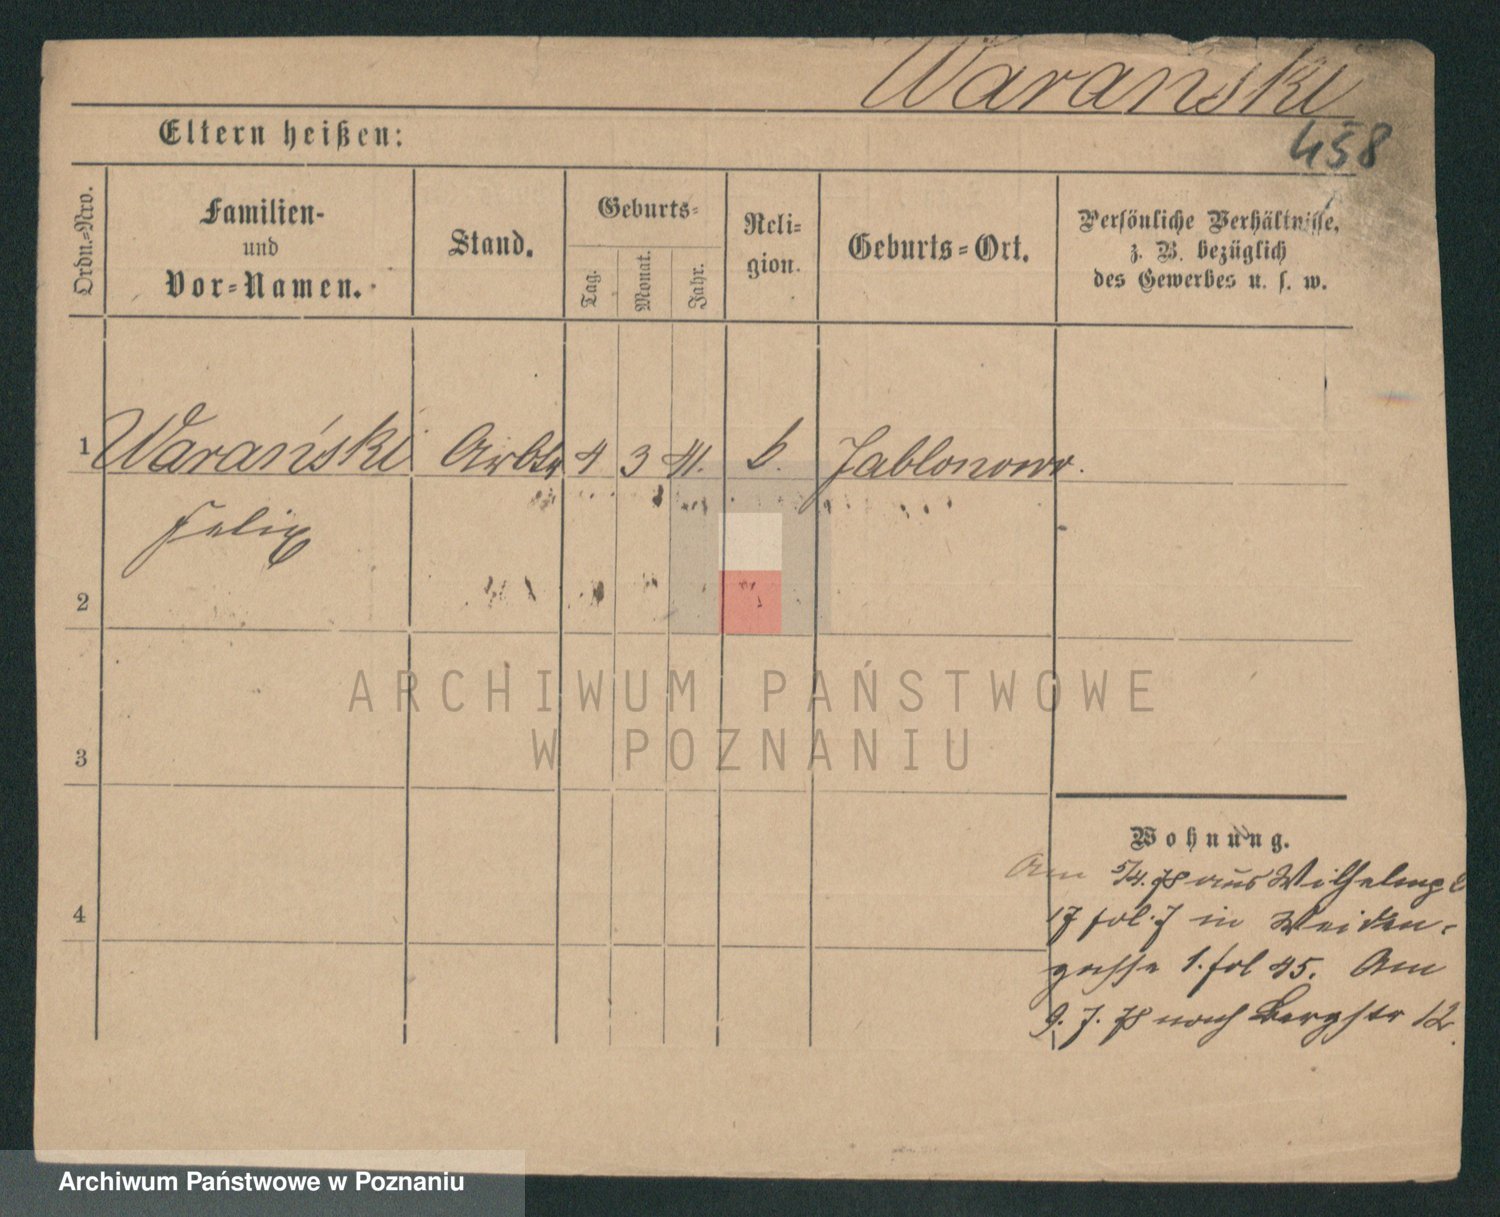 Warański
458
Eltern heißen:
Ordn.-Nro.
Familien-
und
Vor-Namen.
Stand.
Geburts-
Tag.
Monat.
Jahr.
Reli-
gion.
Geburts-Ort.
Persönliche Verhältnisse,
z. B. bezüglich
des Gewerbes u. s. w.
1 Warański Arbtr 4 3 41. k. Jablonowo.
Felix
2
3
4
Wohnung.
Am 5/4. 78 aus Wilhelmspl
17 fol. 7 in Weiden-
gasse 1. fol 45. Am
9. 7. 78 nach Bergstr 12.
ARCHIWUM PAŃSTWOWE
W POZNANIU
Archiwum Państwowe w Poznaniu